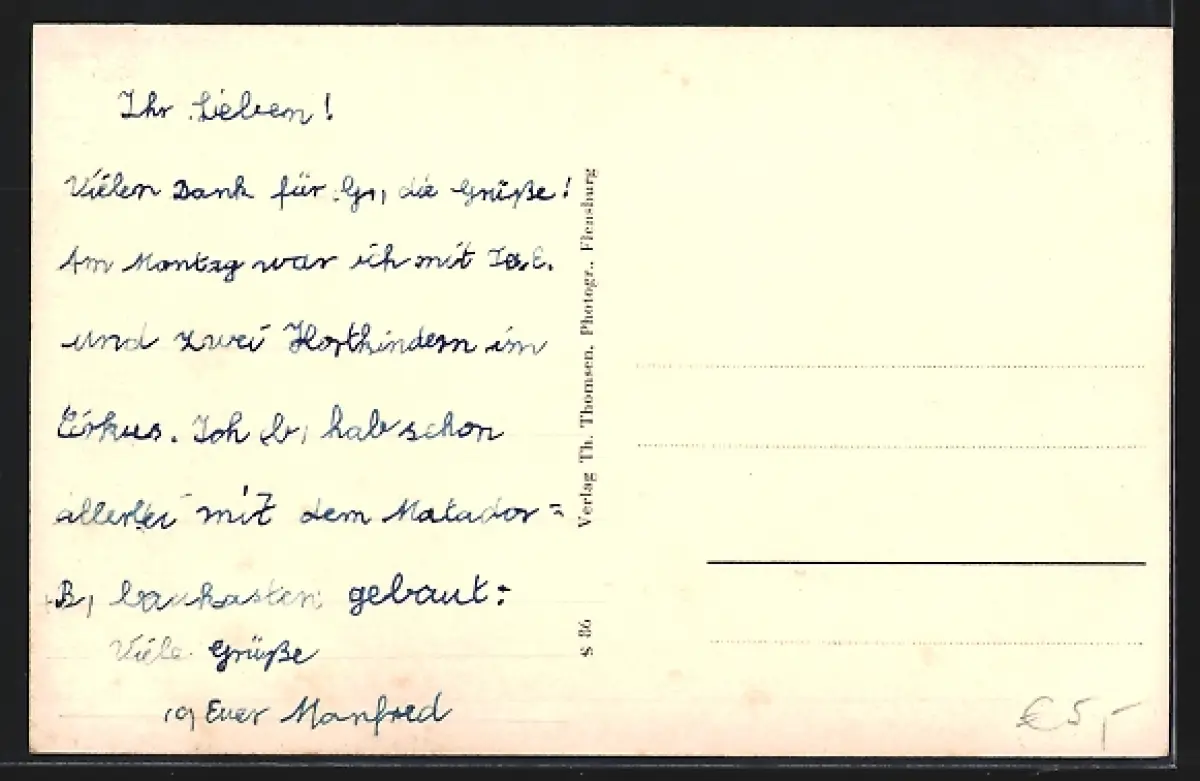 Ihr Lieben!
Vielen Dank für die Grüße!
Am Montag war ich mit
und zwei Hortkindern im
Cirkus. Ich hab schon
allerlei mit dem Matador=
baukasten gebaut:
Viele Grüße
Euer Manfred
Verlag Th. Thomsen, Photogr., Flensburg
S 86
€ 5,-